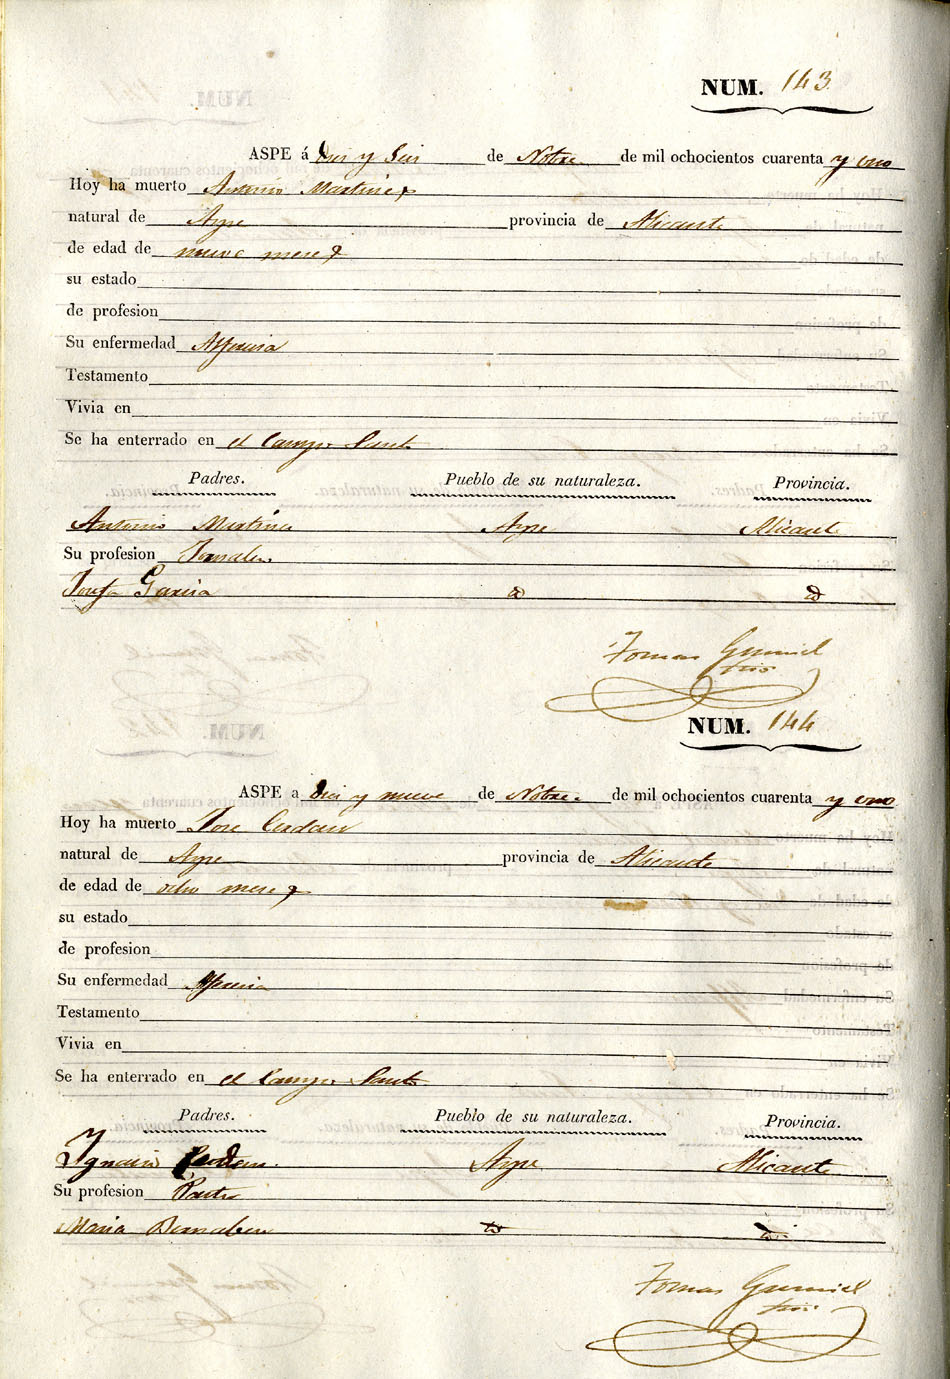 NUM. 143
ASPE á diez y Seis de Nobre. de mil ochocientos cuarenta y uno
Hoy ha muerto Antonio Martinez
natural de Aspe provincia de Alicante
de edad de nueve meses
su estado
de profesion
Su enfermedad Alferecia
Testamento
Vivia en
Se ha enterrado en el Campo Santo
Padres. Pueblo de su naturaleza. Provincia.
Antonio Martinez Aspe Alicante
Su profesion Jornalero
Josefa Garcia id id
Tomas Gumiel
NUM. 144
ASPE a diez y nueve de Nobre. de mil ochocientos cuarenta y uno
Hoy ha muerto Jose Cerdan
natural de Aspe provincia de Alicante
de edad de ocho meses
su estado
de profesion
Su enfermedad Alferecia
Testamento
Vivia en
Se ha enterrado en el Campo Santo
Padres. Pueblo de su naturaleza. Provincia.
Ignacio Cerdan. Aspe Alicante
Su profesion
Maria Bernabeu id id
Tomas Gumiel